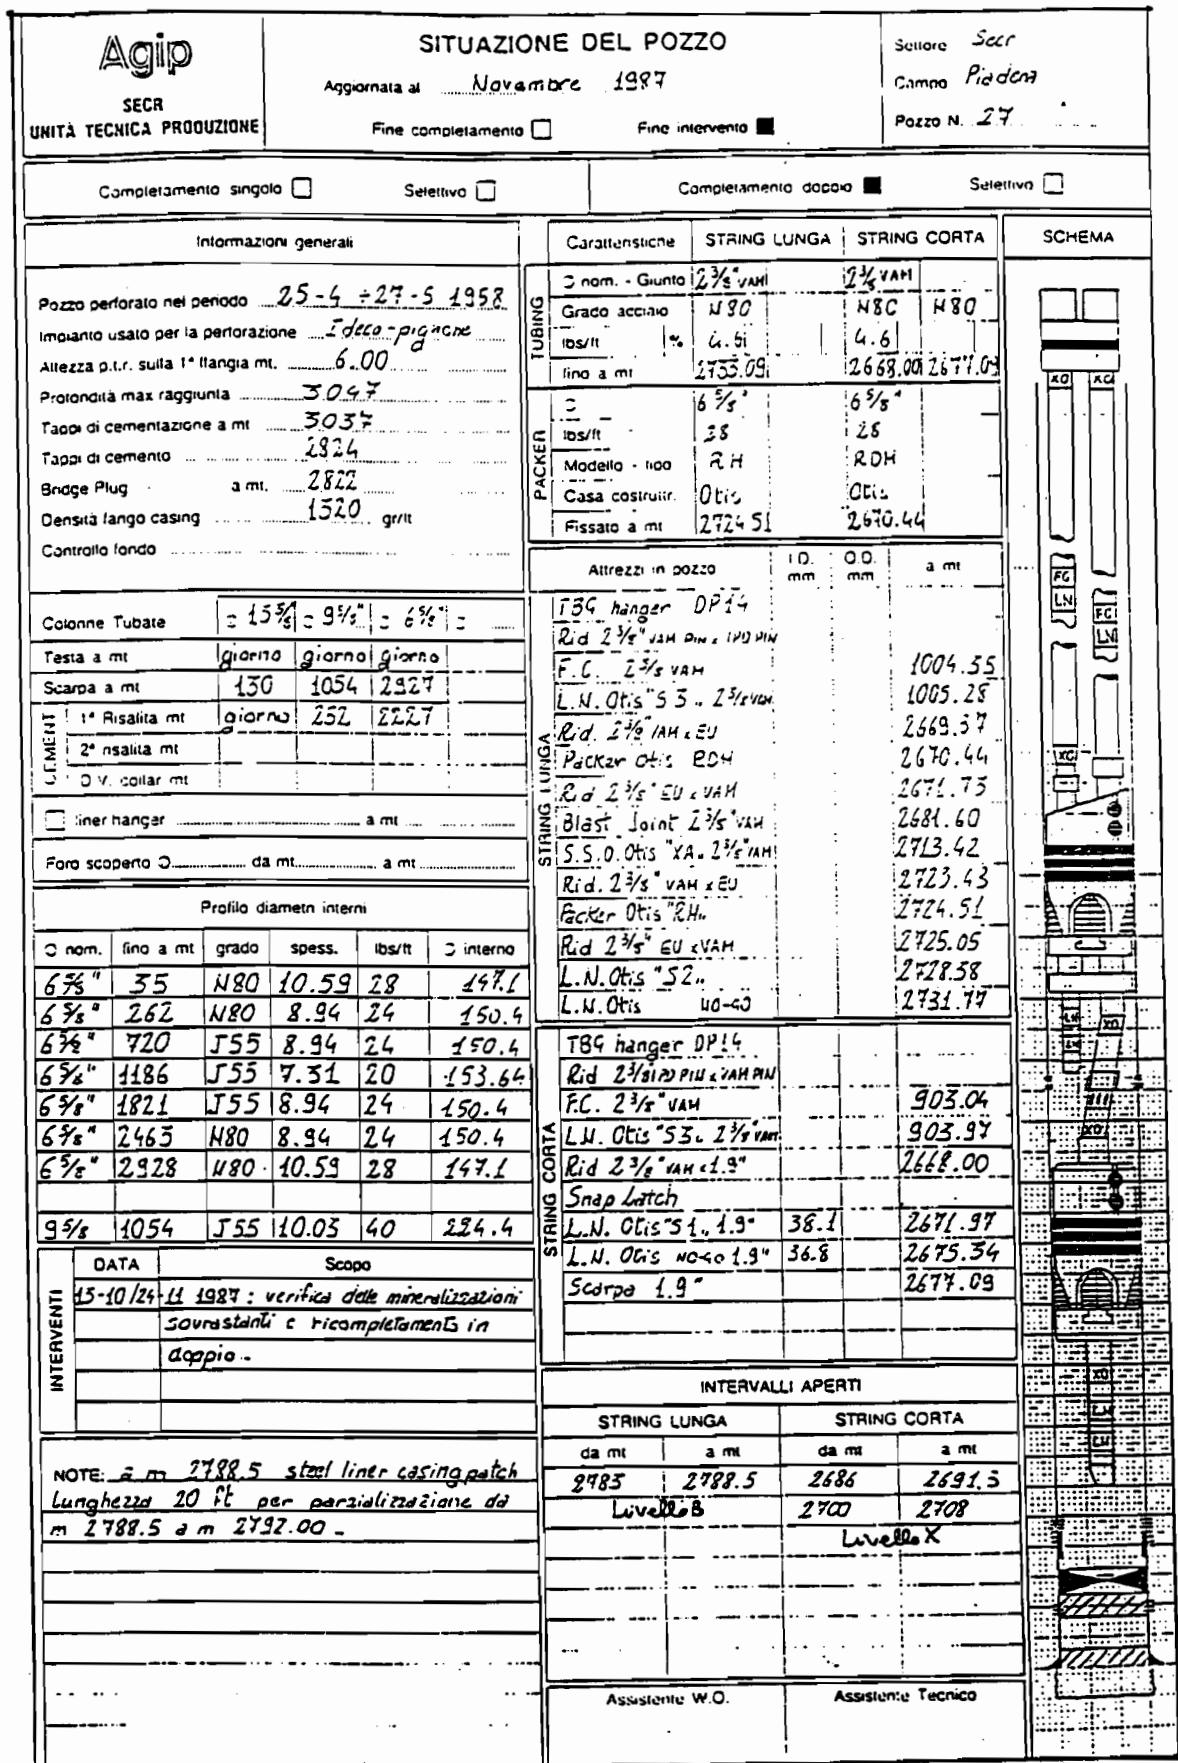 Agip
SECR
UNITÀ TECNICA PRODUZIONE
SITUAZIONE DEL POZZO
Aggiornata al Novembre 1987
Fine completamento Fine intervento
Settore Secr
Campo Piadena
Pozzo N. 27
Completamento singolo Selettivo Completamento doppio Selettivo
Informazioni generali
Pozzo perforato nel periodo 25-4 ÷ 27-5 1958
Impianto usato per la perforazione Ideco-pignone
Altezza p.t.r. sulla 1ª flangia mt. 6.00
Profondità max raggiunta 3047
Tappi di cementazione a mt 3037
Tappi di cemento 2824
Bridge Plug a mt. 2822
Densità fango casing 1320 gr/lt
Controllo fondo
Colonne Tubate 9 5/8" 6 5/8"
Testa a mt giorno giorno giorno
Scarpa a mt 130 1054 2927
CEMENT
1ª Risalita mt giorno 252 2227
2ª risalita mt
D.V. collar mt
liner hanger a mt
Foro scoperto da mt. a mt
Profilo diametri interni
nom. fino a mt grado spess. lbs/ft interno
6 5/8" 35 N80 10.59 28 147.1
6 5/8" 262 N80 8.94 24 150.4
6 5/8" 720 J55 8.94 24 150.4
6 5/8" 1186 J55 7.31 20 153.64
6 5/8" 1821 J55 8.94 24 150.4
6 5/8" 2463 N80 8.94 24 150.4
6 5/8" 2928 N80 10.59 28 147.1
9 5/8 1054 J55 10.03 40 224.4
INTERVENTI
DATA Scopo
13-10/24-11 1987: verifica delle mineralizzazioni
sovrastanti e ricompletamento in
doppio.
NOTE: a m 2788.5 steel liner casing patch
Lunghezza 20 ft per parzializzazione da
m 2788.5 a m 2792.00
Caratteristiche STRING LUNGA STRING CORTA
TUBING
nom. - Giunto 2 3/8" VAM 2 3/8 VAM
Grado acciaio N80 N80 N80
lbs/ft % 4.6 4.6
fino a mt 2733.09 2668.00 2677.09
PACKER
6 5/8" 6 5/8"
lbs/ft 28 28
Modello - tipo RH RDH
Casa costruttr. Otis Otis
Fissato a mt 2724.51 2670.44
Attrezzi in pozzo I.D. mm O.D. mm a mt
STRING LUNGA
TBG hanger DP14
Rid 2 3/8" VAM PIN x IPD PIN
F.C. 2 3/8 VAM 1004.35
L.N. Otis "S3" 2 3/8 VAM 1005.28
Rid. 2 3/8 VAM x EU 2669.37
Packer Otis RDH 2670.44
Rid 2 3/8" EU x VAM 2671.73
Blast Joint 2 3/8" VAM 2681.60
S.S.D. Otis "XA" 2 3/8" VAM 2713.42
Rid. 2 3/8" VAM x EU 2723.43
Packer Otis "RH" 2724.51
Rid 2 3/8" EU x VAM 2725.05
L.N. Otis "S2" 2728.38
L.N. Otis NO-GO 2731.77
STRING CORTA
TBG hanger DP14
Rid 2 3/8 IPD PIN x VAM PIN
F.C. 2 3/8" VAM 903.04
L.N. Otis "S3" 2 3/8" VAM 903.97
Rid 2 3/8" VAM x 1.9" 2668.00
Snap Latch
L.N. Otis "S1" 1.9" 38.1 2671.97
L.N. Otis NO-GO 1.9" 36.8 2675.34
Scarpa 1.9" 2677.09
INTERVALLI APERTI
STRING LUNGA STRING CORTA
da mt a mt da mt a mt
2783 2788.5 2686 2691.5
Livello B 2700 2708
Livello X
Assistente W.O. Assistente Tecnico
SCHEMA
XO XO
FC
LN
FC
LN
XO
LN
XO
LN
XO
XO
LN
LN